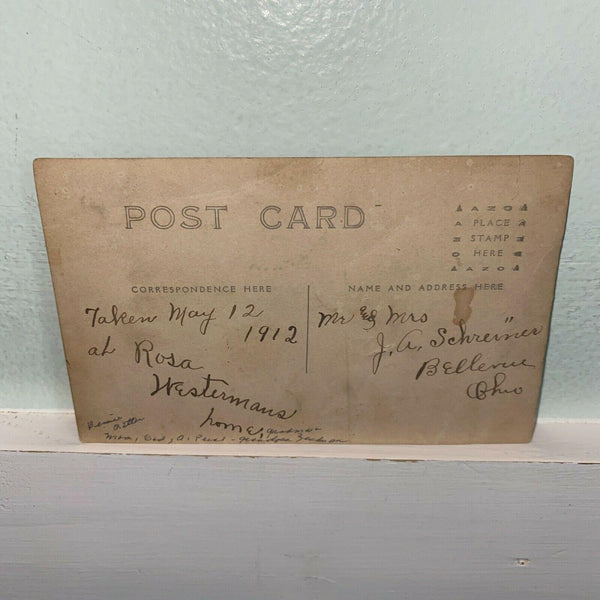 POST CARD
AZO
A PLACE
STAMP
O HERE
AZO
CORRESPONDENCE HERE
NAME AND ADDRESS HERE
Taken May 12
1912
at Rosa
Westermans
home,
Mr & Mrs
J. A. Schreiner
Bellevue
Ohio
Mom, Dad, A. Pearl - Grandpa